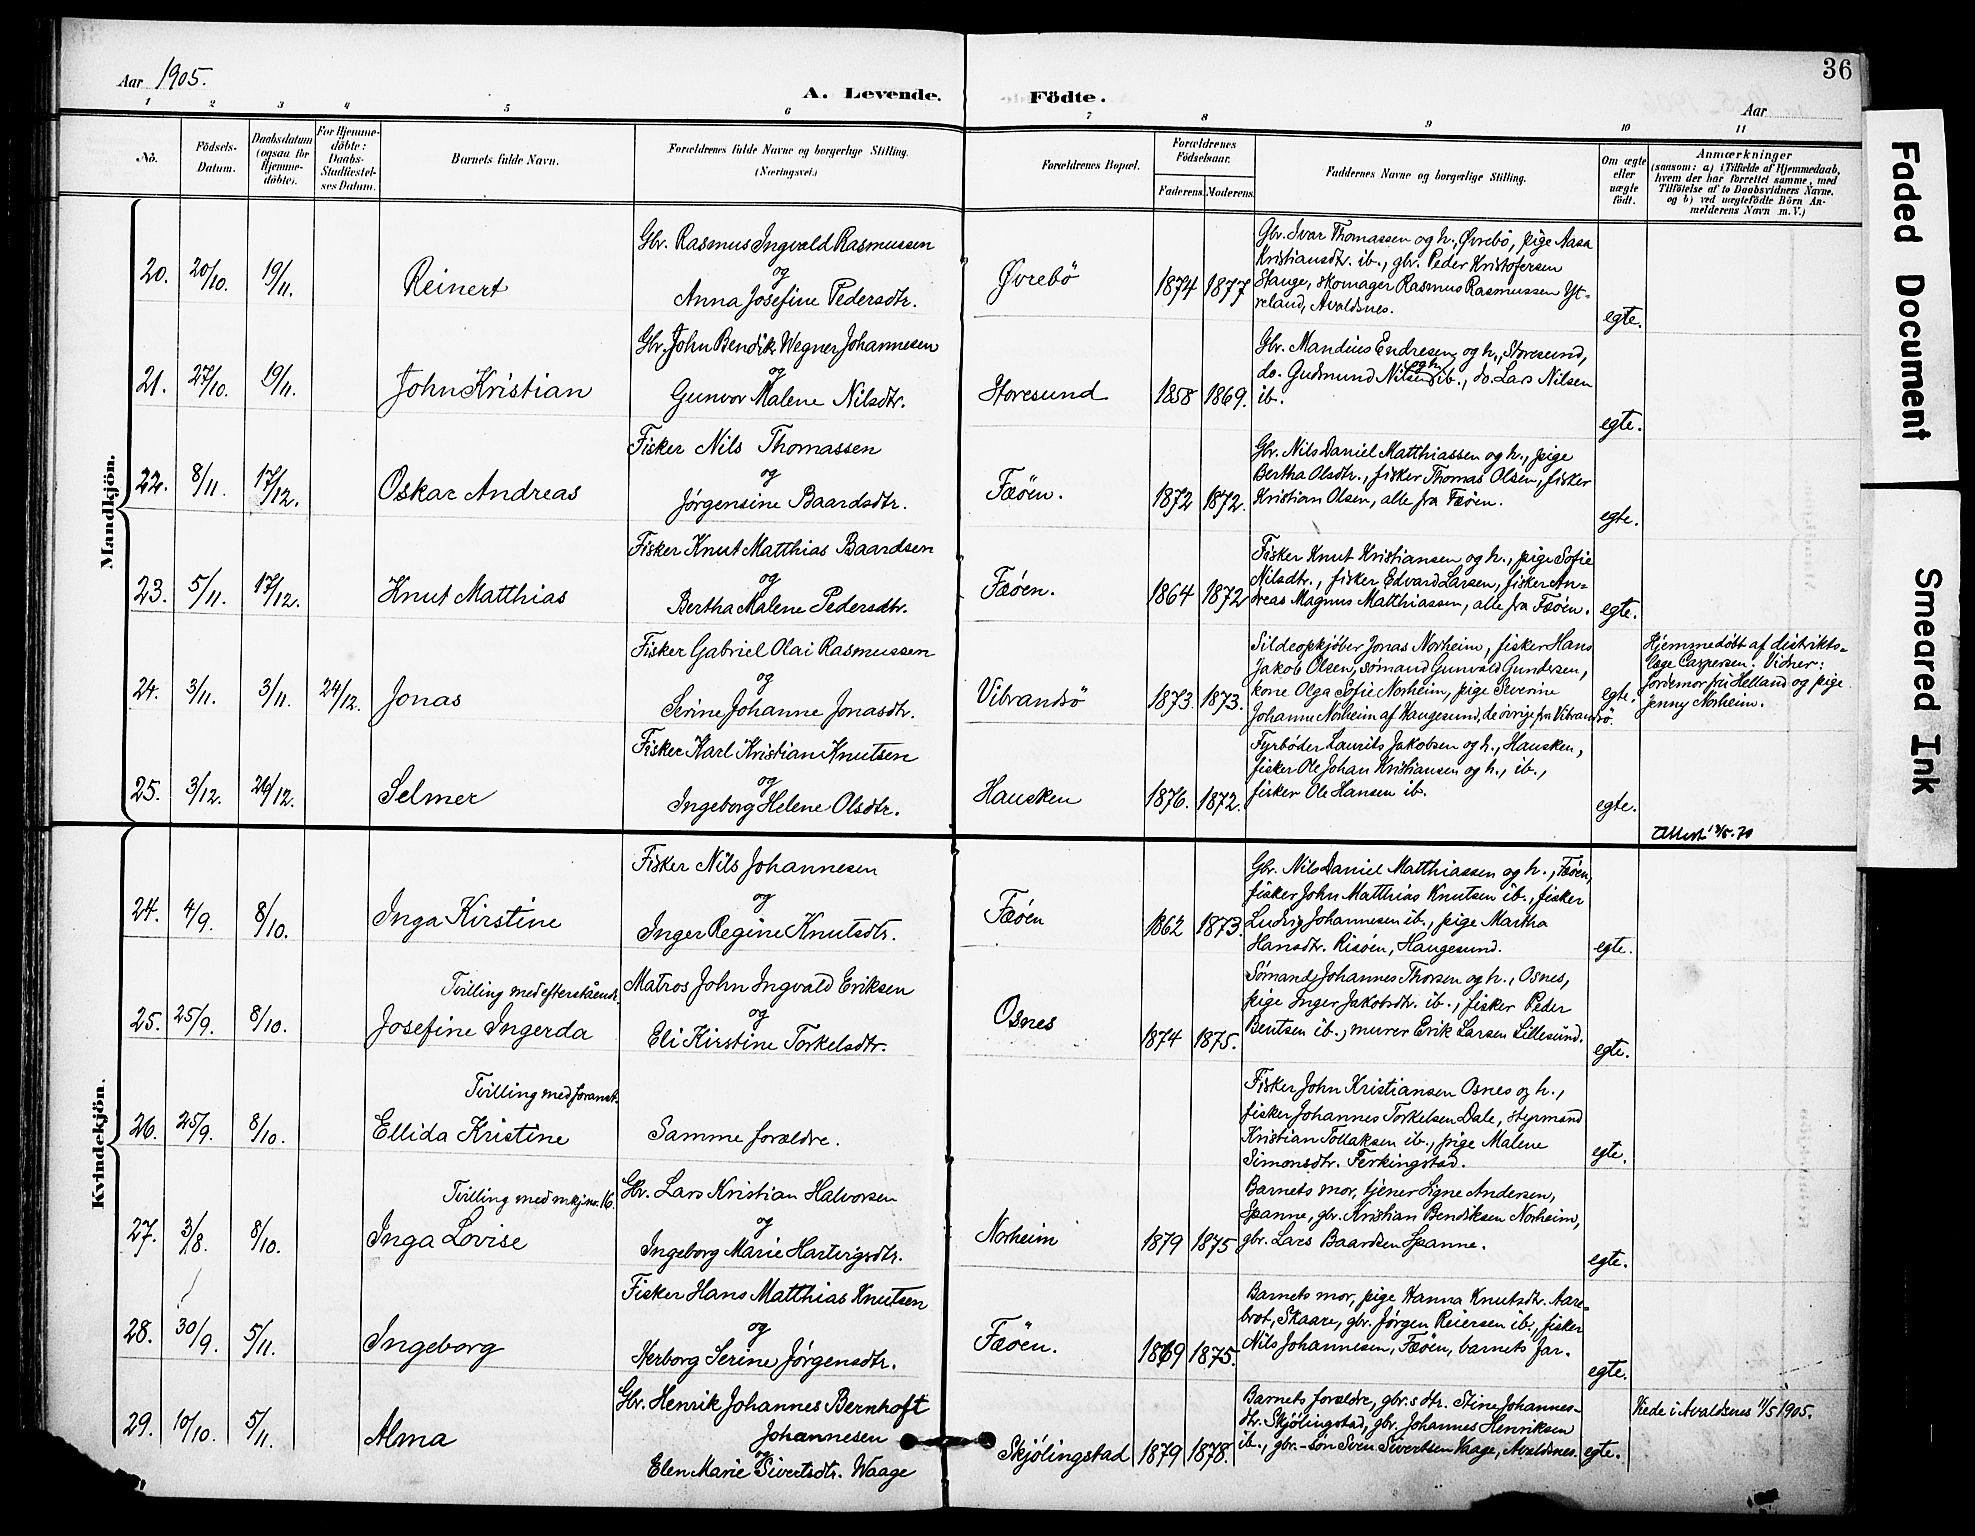 36
Aar 1905.
A. Levende. Födte.
Aar
1 2 3 4 5 6 7 8 9 10 11
No.
Födsels-
Datum.
Daabsdatum
(ogsaa for
Hjemme-
döbte).
For Hjemme-
döbte:
Daabs-
Stadfæstel-
ses Datum.
Barnets fulde Navn.
Forældrenes fulde Navne og borgerlige Stilling.
(Næringsvei.)
Forældrenes Bopæl.
Forældrenes
Födselsaar.
Faderens. Moderens.
Faddernes Navne og borgerlige Stilling.
Om ægte
eller
uægte
födt.
Anmærkninger
(saasom: a) i Tilfælde af Hjemmedaab,
hvem der har forrettet samme, med
Tilföielse af to Daabsvidners Navne.
og b) ved uægtefödte Börn An-
melderens Navn m. V.)
Mandkjön.
20. 20/10. 19/11. Reinert
Gbr. Rasmus Ingvald Rasmussen
og
Anna Josefine Pedersdtr.
Øvrebö 1874 1877
Gbr. Ivar Thomassen og h., Øvrebö, pige Aasa
Kristiansdtr. ib., gbr. Peder Kristofersen
Stange, skomager Rasmus Rasmussen Yt-
reland, Avaldsnes.
egte.
21. 27/10. 19/11. John Kristian
Gbr. John Bendik Wegner Johannesen
og
Gunvor Malene Nilsdtr.
Storesund 1858 1869.
Gbr. Mandius Endresen og h., Storesund,
do. Gudmund Nilsen og h. ib., do. Lars Nilsen
ib.
egte.
22. 8/11. 17/12. Oskar Andreas
Fisker Nils Thomassen
og
Jørgensine Baardsdtr.
Fæöen. 1872 1872.
Gbr. Nils Daniel Matthiassen og h., pige
Bertha Olsdtr., fisker Thomas Olsen, fisker
Kristian Olsen, alle fra Fæöen.
egte.
23. 5/11. 17/12. Knut Matthias
Fisker Knut Matthias Baardsen
og
Bertha Malene Pedersdtr.
Fæöen. 1864 1872
Fisker Knut Kristiansen og h., pige Sofie
Nilsdtr., fisker Edvard Larsen, fisker An-
dreas Magnus Matthiassen, alle fra Fæöen.
egte.
24. 3/11. 3/11. 24/12. Jonas
Fisker Gabriel Olai Rasmussen
og
Serine Johanne Jonasdtr.
Vibrandsö 1873. 1873.
Sildeopkjöber Jonas Norheim, fisker Hans
Jakob Olsen, sömand Gunvald Gundersen,
kone Olga Sofie Norheim, pige Severine
Johanne Norheim af Haugesund, de övrige fra Vibrandsö.
egte.
Hjemmedöbt af distrikts-
læge Carpersen. Vidner:
Jordemor fru Helland og pige
Jenny Norheim.
25. 3/12. 26/12. Selmer
Fisker Karl Kristian Knutsen
og
Ingeborg Helene Olsdtr.
Hausken 1876. 1872.
Fyrböder Laurits Jakobsen og h., Hausken,
fisker Ole Johan Kristiansen og h., ib.,
fisker Ole Hansen ib.
egte.
Kvindekjön.
24. 4/9. 8/10. Inga Kirstine
Fisker Nils Johannesen
og
Inger Regine Knutsdtr.
Fæöen 1862 1873.
Gbr. Nils Daniel Matthiassen og h., Fæöen,
fisker John Matthias Knutsen ib., fisker
Ludvig Johannesen ib., pige Martha
Hansdtr. Risöen, Haugesund.
egte.
Tvilling med efterståend.
25. 25/9. 8/10. Josefine Ingerda
Matros John Ingvald Eriksen
og
Eli Kirstine Torkelsdtr.
Osnes 1874 1875.
Sömand Johannes Thorsen og h., Osnes,
pige Inger Jakobsdtr. ib., fisker Peder
Bentsen ib., murer Erik Larsen Lillesund.
egte.
Tvilling med foranst.
26. 25/9. 8/10. Ellida Kristine
Samme forældre.
Fisker John Kristiansen Osnes og h.,
fisker Johannes Torkelsen Dale, styrmand
Kristian Tollaksen ib., pige Malene
Simonsdtr. Ferkingstad.
egte.
Tvilling med mkj. no. 16.
27. 3/8. 8/10. Inga Lovise
Gbr. Lars Kristian Halvorsen
og
Ingeborg Marie Hartvigsdtr.
Norheim 1879 1875
Barnets mor, tjener Signe Andersen,
Spanne, gbr. Kristian Bendiksen Norheim,
gbr. Lars Baardsen Spanne.
egte.
28. 30/9. 5/11. Ingeborg
Fisker Hans Matthias Knutsen
og
Nerborg Serine Jørgensdtr.
Fæöen. 1869 1875.
Barnets mor, pige Hanna Knutsdtr. Aare-
brot, Skaare, gbr. Jørgen Reiersen ib., fisker
Nils Johannesen, Fæöen, barnets far.
egte.
29. 10/10. 5/11. Alma
Gbr. Henrik Johannes Bernhoft
Johannesen
og
Elen Marie Sivertsdtr. Waage
Skjölingstad 1879 1878.
Barnets forældre, gbr.s dtr. Stine Johannes-
dtr. Skjölingstad, gbr. Johannes Henriksen
ib., gbr.-sön Sven Sivertsen Vaage, Avaldsnes.
egte.
Viede i Avaldsnes 11/5 1905.
Faded Document
Smeared Ink